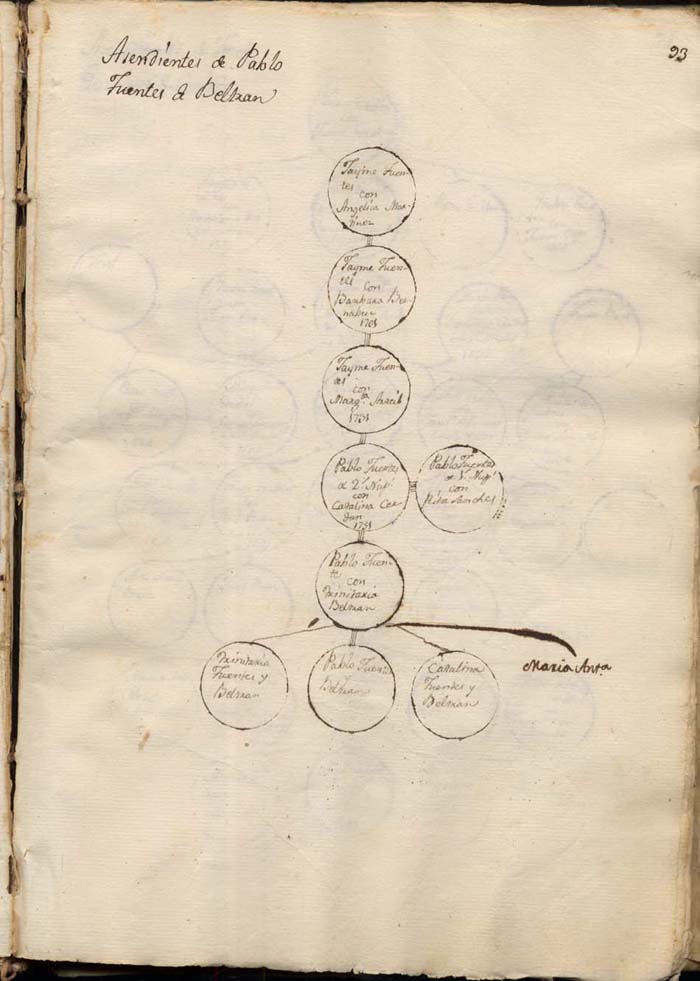 93
Asendientes de Pablo
Fuentes & Beltran
Tayme Fuen-
tes
con
Angelica Mar-
tinez
Tayme Fuen-
tes con
Barbara Ber-
nabeu
1701
Tayme Fuen-
tes
con
Margta
1731
Pablo Fuentes
de 2s Nups
con
Catalina Cer-
dan
1751
Pablo Fuentes
de 1s Nups
con
Rita Sanches
Pablo Fuen-
tes
con
Trinitaria
Beltran
Trinitaria
Fuentes y
Beltran
Pablo Fuentes
Beltran
Catalina
Fuentes y
Beltran
Maria Anta